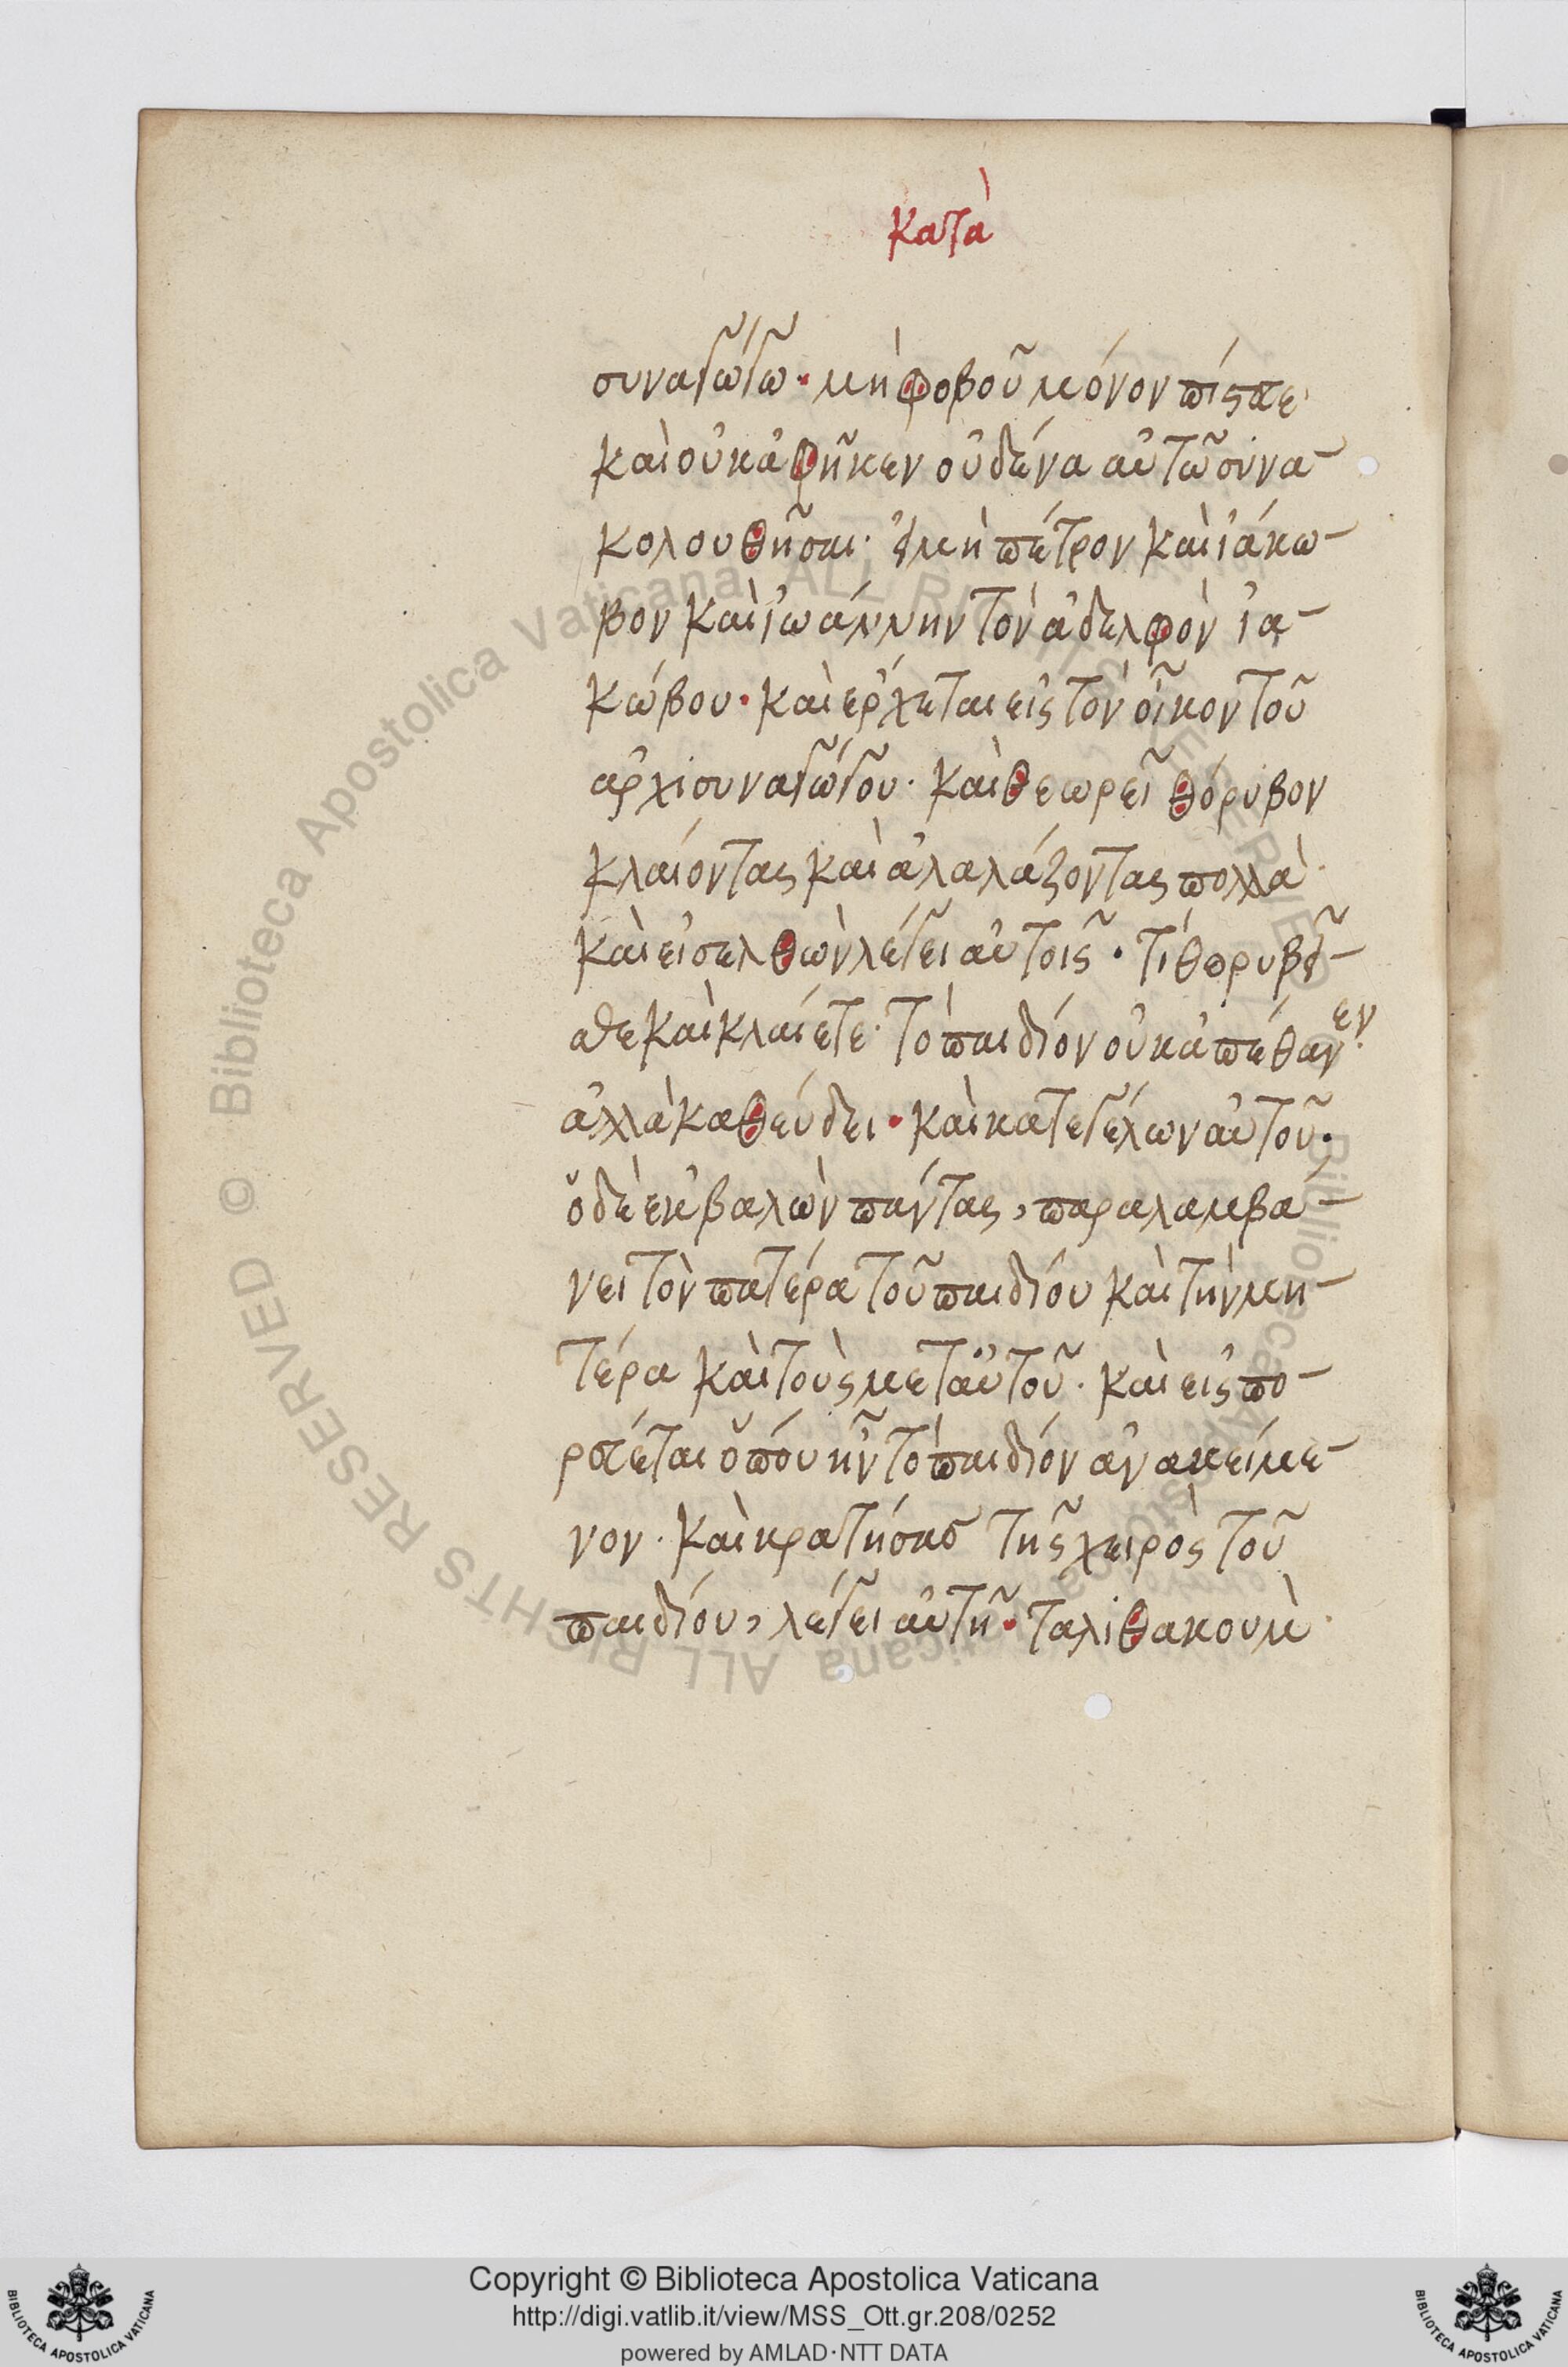 κατὰ
συναγωγω̃· μὴ φοβοῦ μόνον πίστευε·
καὶ οὐκ ἀφῆκεν οὐδένα αὐτῶ συνα-
κολουθῆσαι· εἰ μὴ πέτρον καὶ ἰάκω-
βον καὶ ἰωάννην τὸν ἀδελφὸν ἰα-
κώβου· καὶ ἔρχεται εἰς τὸν οἶκον τοῦ
ἀρχισυναγώγου· καὶ θεωρεῖ θόρυβον
κλαίοντας καὶ ἀλαλάζοντας πολλὰ·
καὶ εἰσελθὼν λέγει αὐτοῖς· τί θορυβεῖ-
σθε καὶ κλαίετε· τὸ παιδίον οὐκ ἀπέθανεν·
ἀλλὰ καθεύδει· καὶ κατεγέλων αὐτοῦ·
ὁ δὲ ἐκβαλὼν πάντας, παραλαμβά-
νει τὸν πατέρα τοῦ παιδίου καὶ τὴν μη-
τέρα καὶ τοὺς μετ αὐτοῦ· καὶ εἰσπο-
ρεύεται ὅπου ἦν τὸ παιδίον ἀνακείμε-
νον· καὶ κρατήσας τῆς χειρὸς τοῦ
παιδίου, λέγει αὐτῆ· ταλιθα κουμὶ·
Copyright © Biblioteca Apostolica Vaticana
http://digi.vatlib.it/view/MSS_Ott.gr.208/0252
powered by AMLAD·NTT DATA
BIBLIOTECA APOSTOLICA VATICANA
BIBLIOTECA APOSTOLICA VATICANA
© Biblioteca Apostolica Vaticana ALL RIGHTS RESERVED
Biblioteca Apostolica Vaticana ALL RIGHTS RESERVED